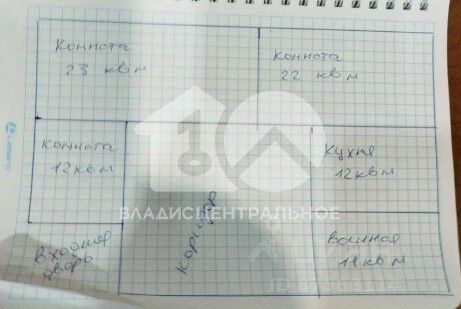 Комната
23 кв м
Комната
22 кв м
Комната
12 кв м
Кухня
12 кв м
ВЛАДИСЦЕНТРАЛЬНОЕ
Коридор
Входная
дверь
Ванная